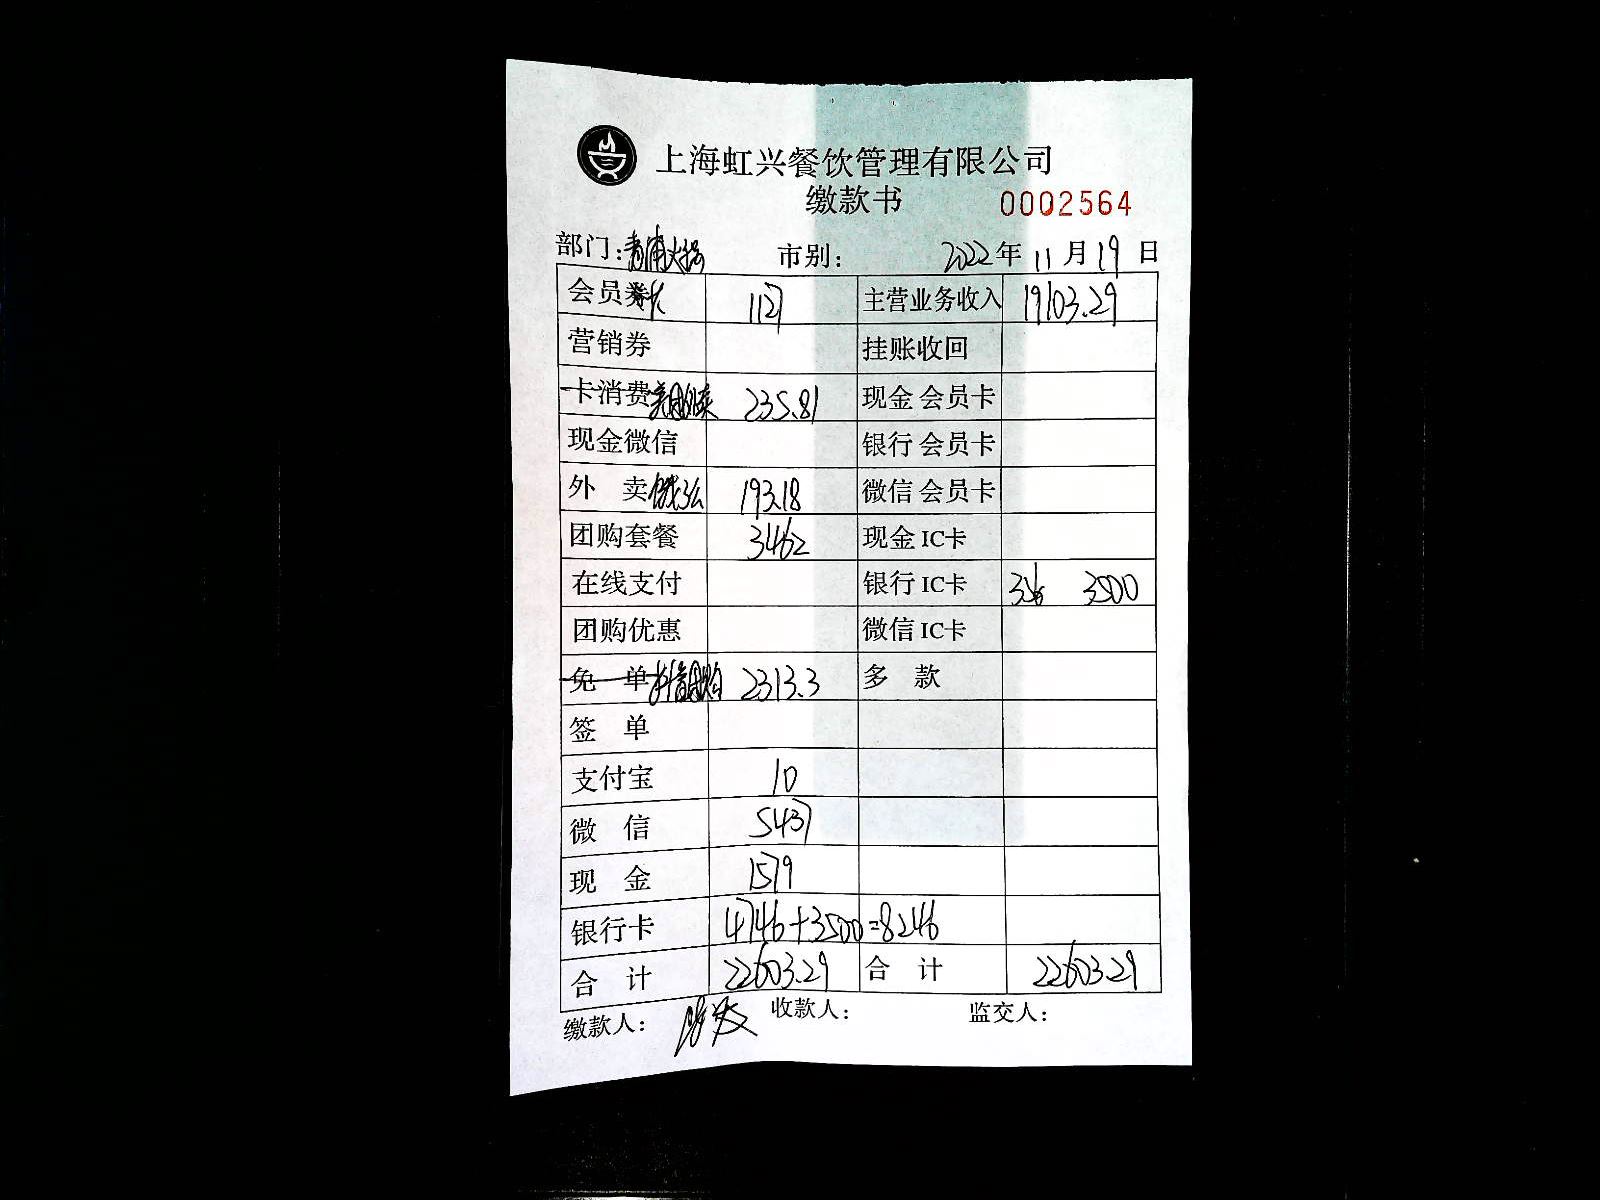 上海虹兴餐饮管理有限公司
缴款书 0002564
部门：青浦火锅 市别： 2022年11月19日
会员 1127 主营业务收入 19103.29
营销券 挂账收回
卡消费 美团外卖 235.81 现金会员卡
现金微信 银行会员卡
外 卖 饿了么 193.18 微信会员卡
团购套餐 3462 现金IC卡
在线支付 银行IC卡 3500
团购优惠 微信IC卡
免 单 抖音团购 2313.3 多 款
签 单
支付宝 10
微 信 5437
现 金 1579
银行卡 4746+3500=8246
合 计 22603.29 合 计 22603.29
缴款人： 收款人： 监交人：